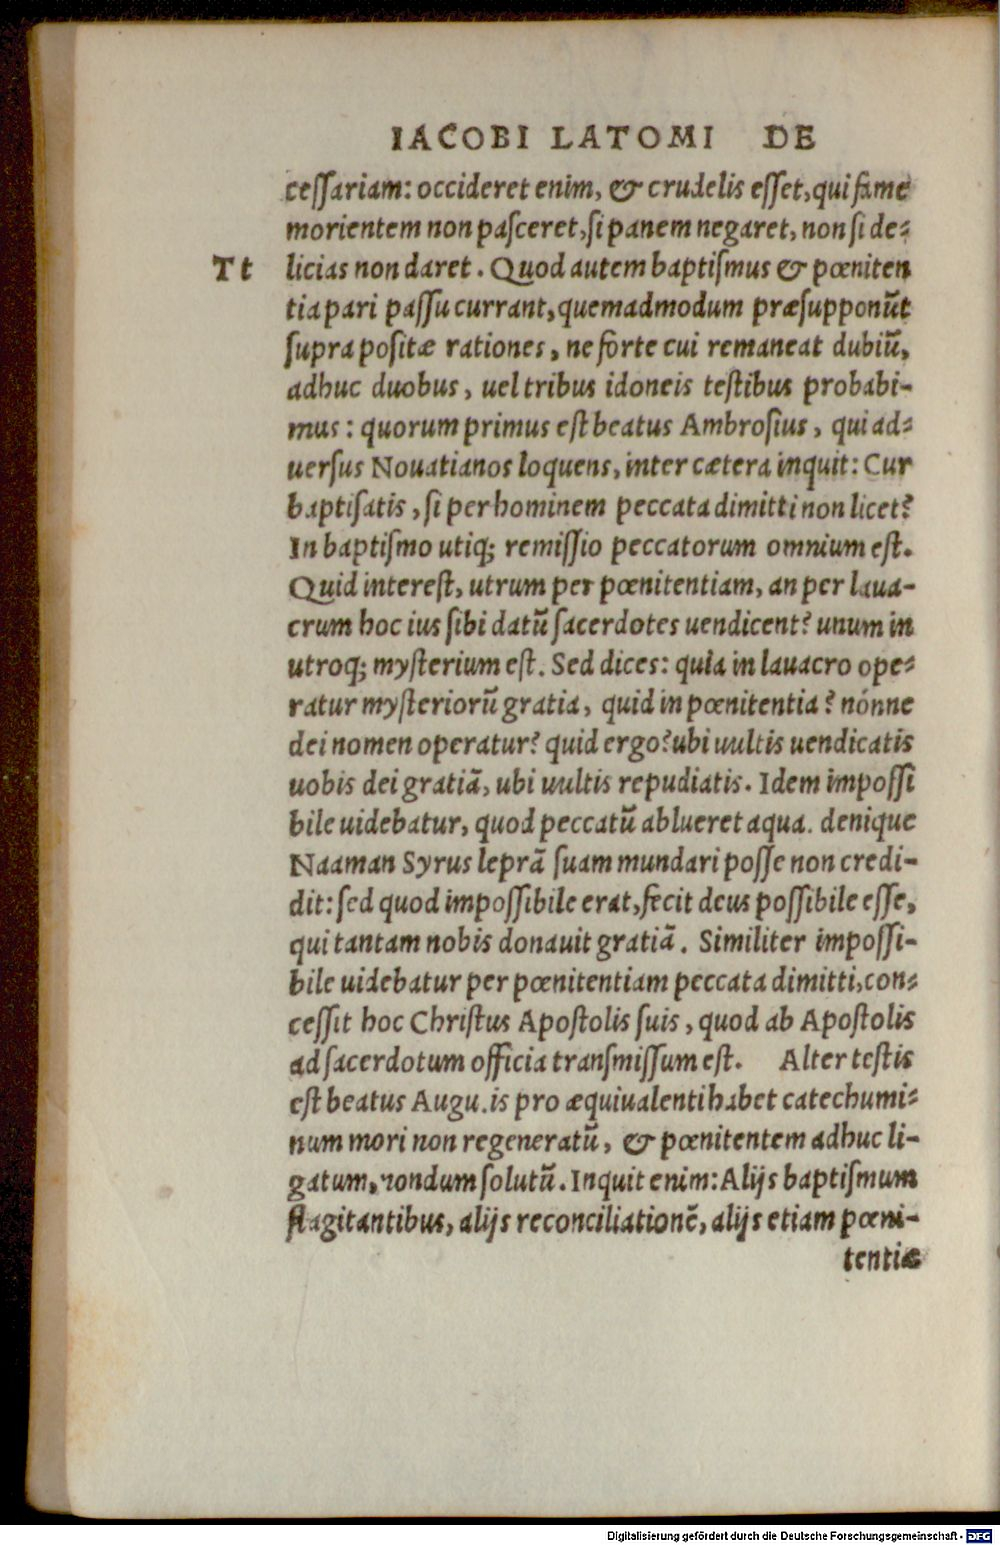 IACOBI LATOMI DE
cessariam: occideret enim, & crudelis esset, qui fame
morientem non pasceret, si panem negaret, non si de-
Tt licias non daret. Quod autem baptismus & pœniten
tia pari passu currant, quemadmodum præsupponūt
supra positæ rationes, ne forte cui remaneat dubiū,
adhuc duobus, uel tribus idoneis testibus probabi-
mus: quorum primus est beatus Ambrosius, qui ad-
uersus Nouatianos loquens, inter cætera inquit: Cur
baptisatis, si per hominem peccata dimitti non licet?
In baptismo utiq; remissio peccatorum omnium est.
Quid interest, utrum per pœnitentiam, an per laua-
crum hoc ius sibi datū sacerdotes uendicent? unum in
utroq; mysterium est. Sed dices: quia in lauacro ope-
ratur mysteriorū gratia, quid in pœnitentia? nónne
dei nomen operatur? quid ergo? ubi uultis uendicatis
uobis dei gratiā, ubi uultis repudiatis. Idem impossi
bile uidebatur, quod peccatū ablueret aqua. denique
Naaman Syrus leprā suam mundari posse non credi-
dit: sed quod impossibile erat, fecit deus possibile esse,
qui tantam nobis donauit gratiā. Similiter impossi-
bile uidebatur per pœnitentiam peccata dimitti, con-
cessit hoc Christus Apostolis suis, quod ab Apostolis
ad sacerdotum officia transmissum est. Alter testis
est beatus Augu. is pro æquiualenti habet catechumi-
num mori non regeneratū, & pœnitentem adhuc li-
gatum, nondum solutū. Inquit enim: Alijs baptismum
flagitantibus, alijs reconciliationē, alijs etiam pœni-
tentiæ
Digitalisierung gefördert durch die Deutsche Forschungsgemeinschaft - DFG